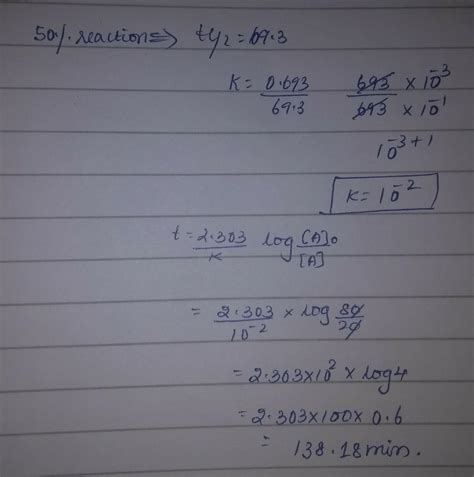 50%. reaction ⇒ t1/2 = 69.3
K = 0.693/69.3 693 × 10^-3/693 × 10^-1
10^-3+1
K = 10^-2
t = 2.303/K log [A]o/[A]
= 2.303/10^-2 × log 80/20
= 2.303×10^2 × log4
= 2.303×100×0.6
= 138.18min.